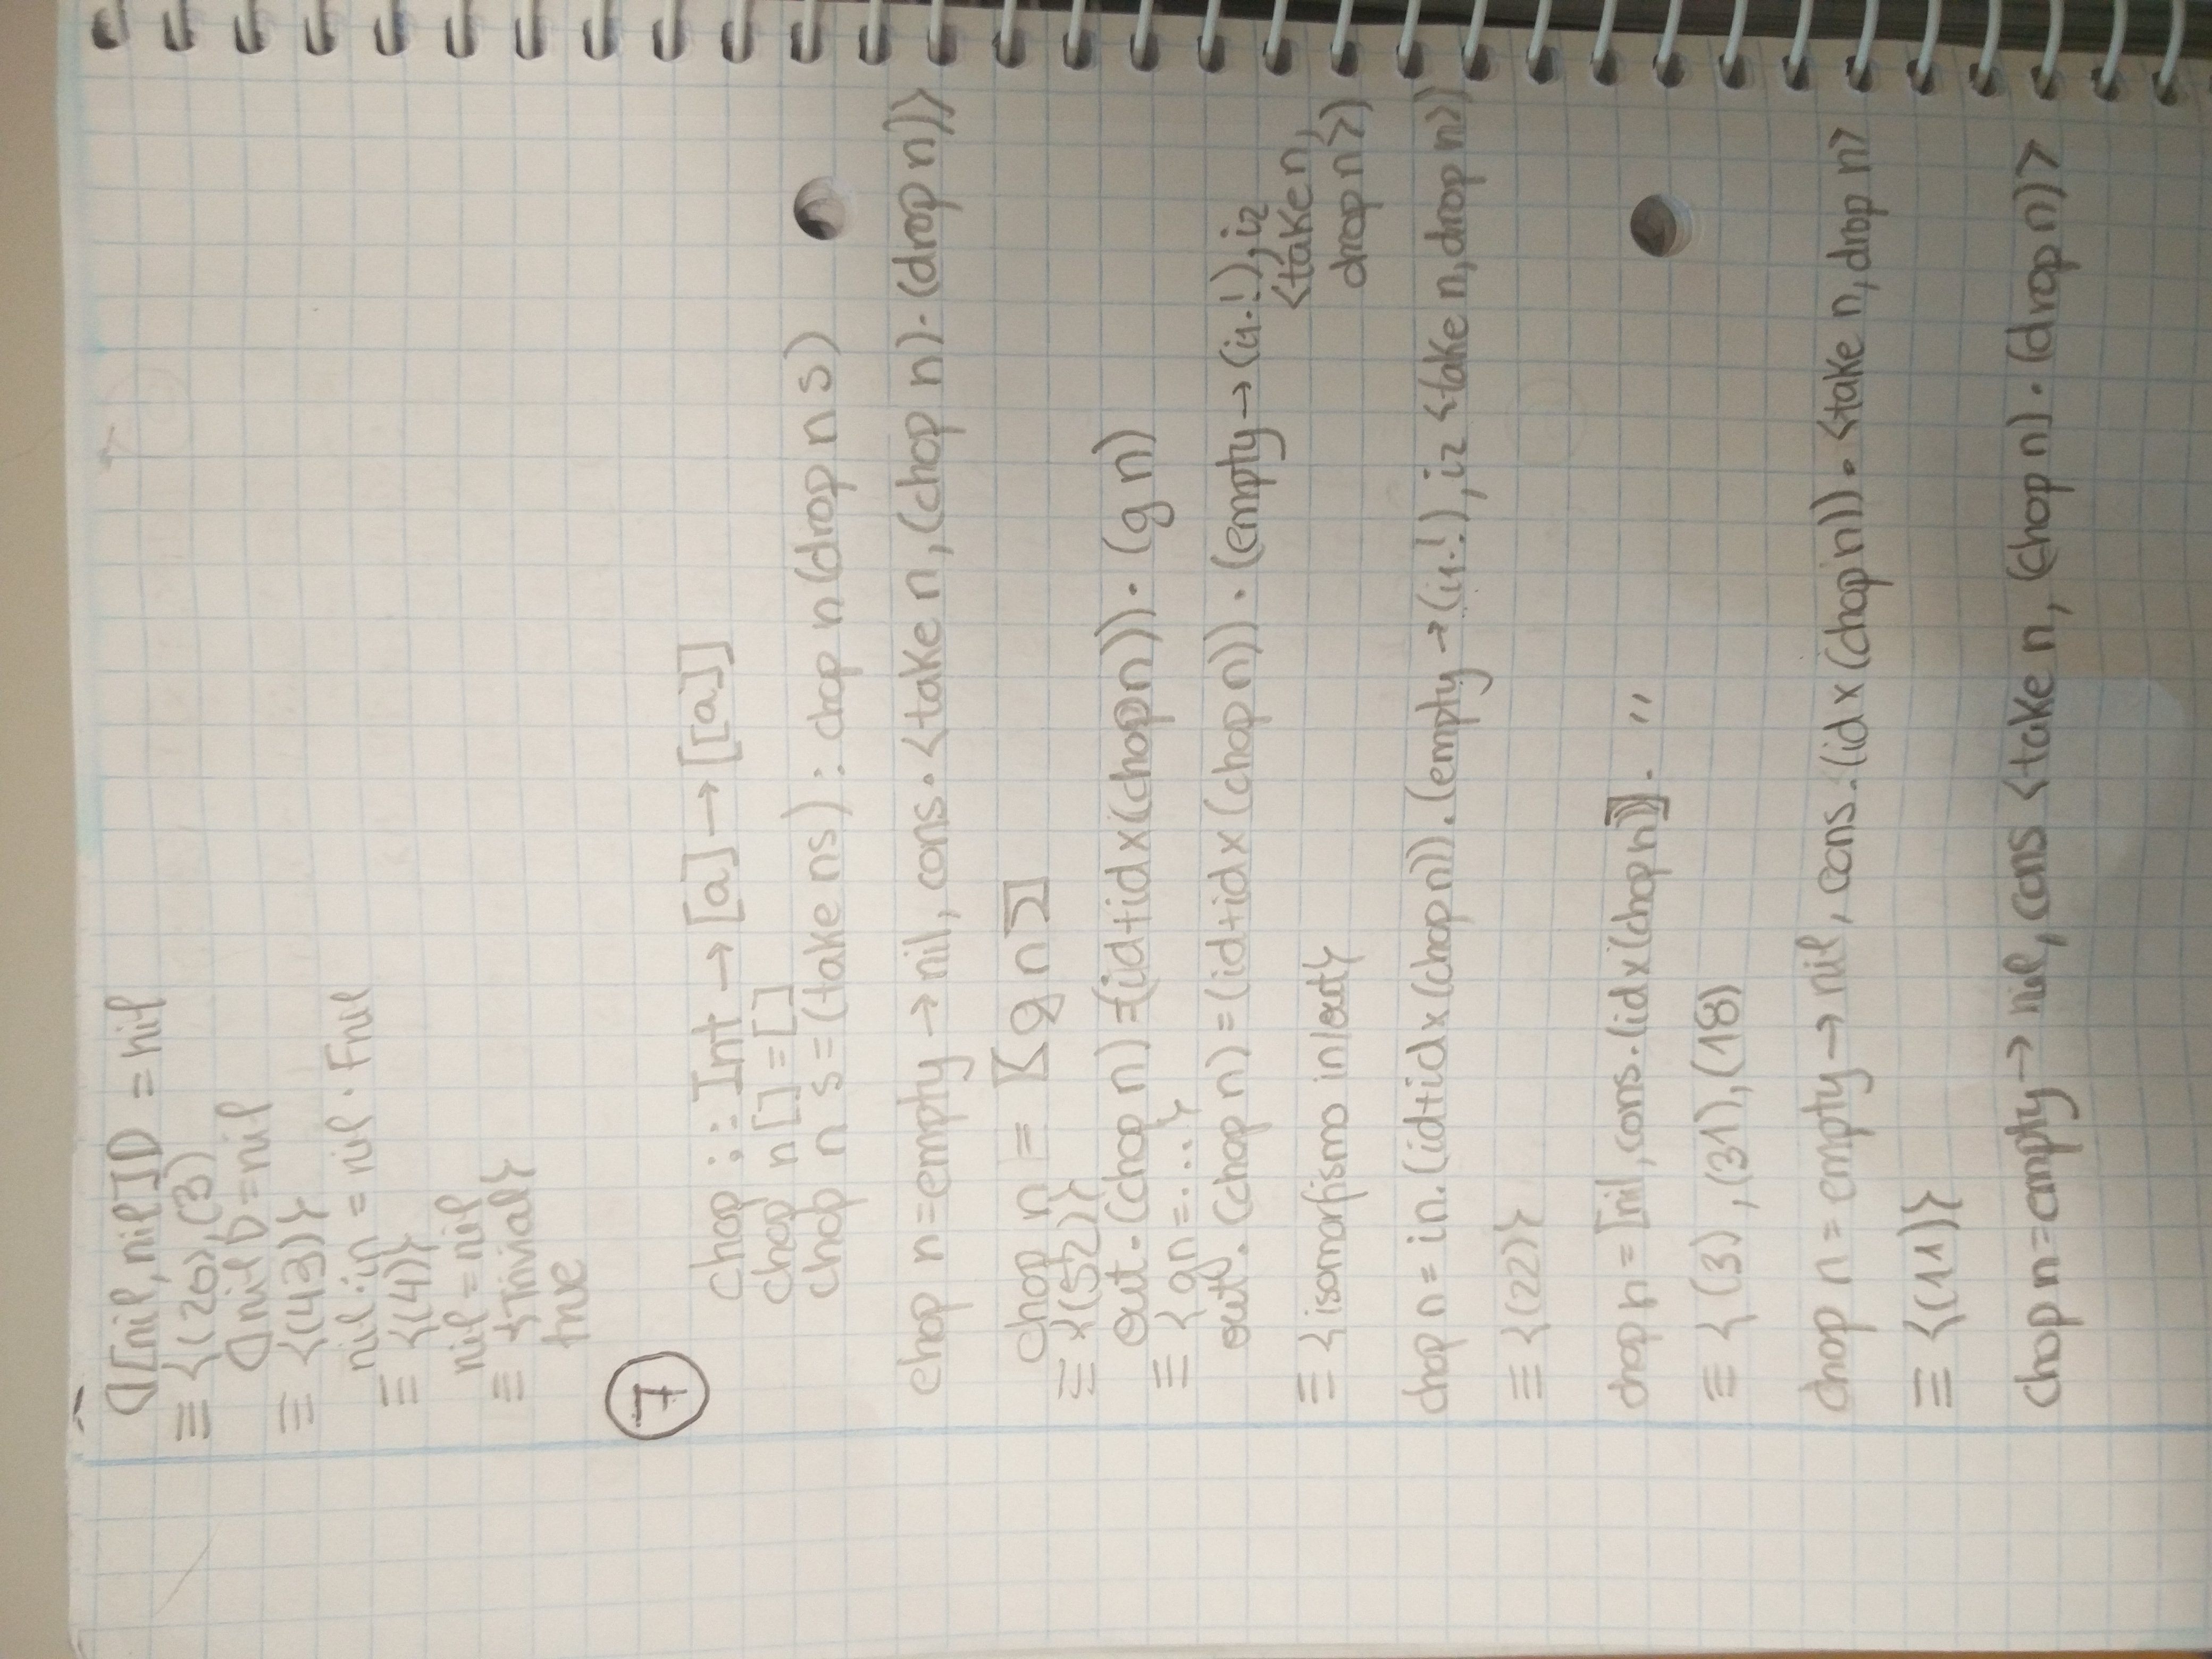 ⦇[nil, nil]⦈ = nil
≡ {(20), (3)
⦇nil⦈ = nil
≡ {(43)}
nil · in = nil · Fnil
≡ {(4)}
nil = nil
≡ {Trivial}
true
7
chop :: Int → [a] → [[a]]
chop n [] = []
chop n s = (take n s) : chop n (drop n s)
chop n = empty → nil, cons · <take n, (chop n) · (drop n)>
chop n = 〖g n〗
≡ {(52)}
out · (chop n) = (id + id × (chop n)) · (g n)
≡ {g n = ...}
out · (chop n) = (id + id × (chop n)) · (empty → (i1 · !), i2
<take n,
drop n>)
≡ {isomorfismo in/out}
chop n = in · (id + id × (chop n)) · (empty → (i1 · !), i2 <take n, drop n>)
≡ {(22)}
chop n = [nil, cons · (id × (chop n))] · "
≡ { (3), (31), (18)
chop n = empty → nil, cons · (id × (chop n)) · <take n, drop n>
≡ {(11)}
chop n = empty → nil, cons <take n, (chop n) · (drop n)>